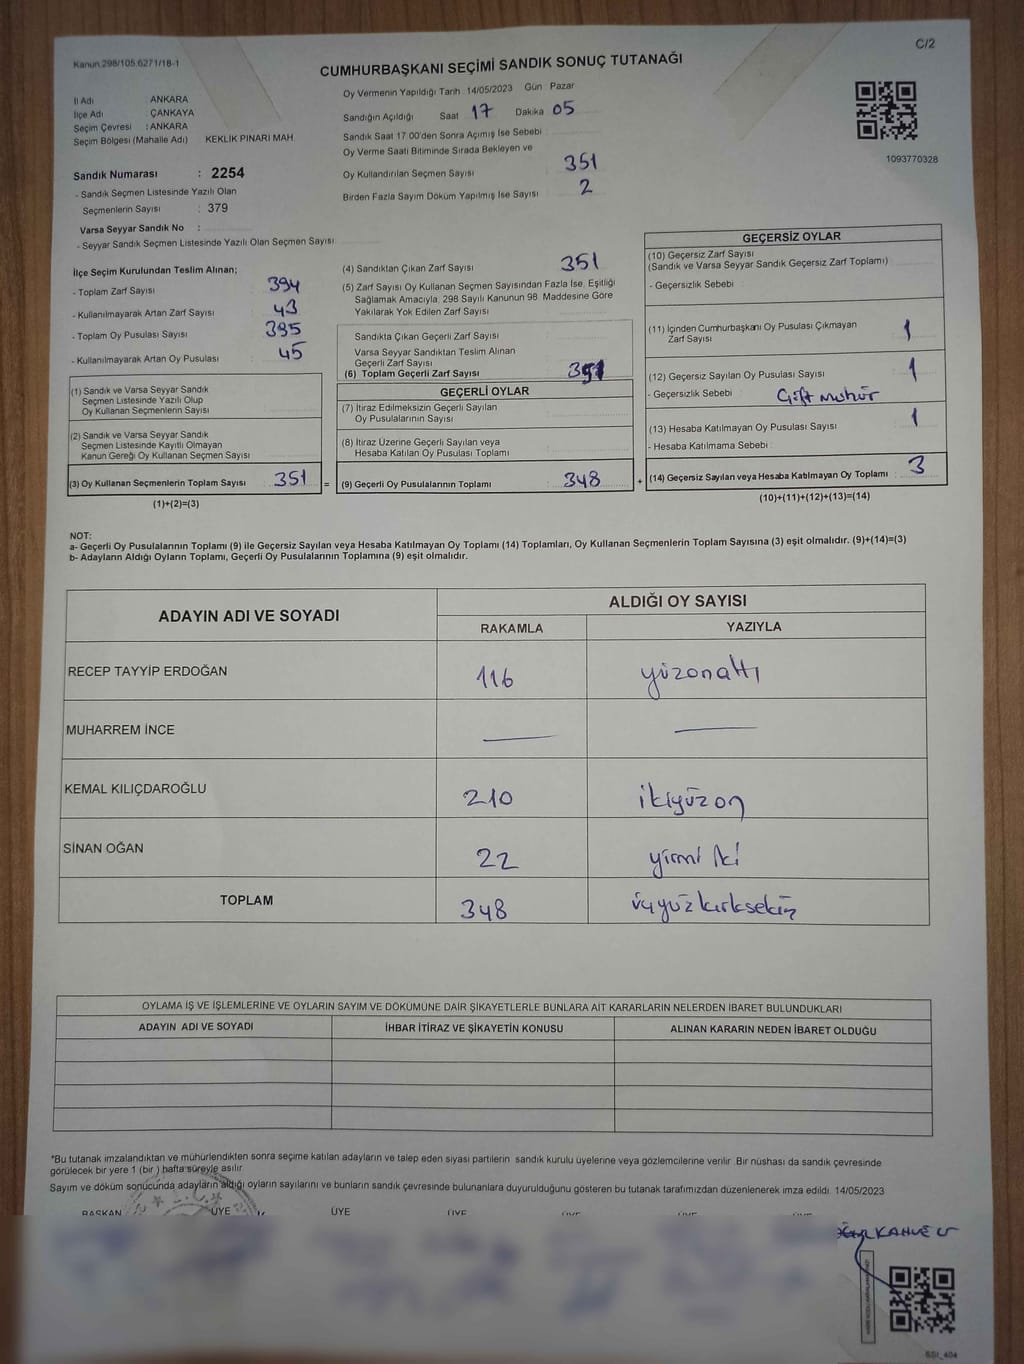 Kanun 298/105,6271/18-1
C/2
CUMHURBAŞKANI SEÇİMİ SANDIK SONUÇ TUTANAĞI
İl Adı ANKARA
İlçe Adı ÇANKAYA
Seçim Çevresi : ANKARA
Seçim Bölgesi (Mahalle Adı) KEKLİK PINARI MAH.
Sandık Numarası : 2254
- Sandık Seçmen Listesinde Yazılı Olan
Seçmenlerin Sayısı : 379
Varsa Seyyar Sandık No :
- Seyyar Sandık Seçmen Listesinde Yazılı Olan Seçmen Sayısı
Oy Vermenin Yapıldığı Tarih 14/05/2023 Gün Pazar
Sandığın Açıldığı Saat 17 Dakika 05
Sandık Saat 17 00'den Sonra Açılmış İse Sebebi
Oy Verme Saati Bitiminde Sırada Bekleyen ve
Oy Kullandırılan Seçmen Sayısı 351
Birden Fazla Sayım Döküm Yapılmış İse Sayısı 2
1093770328
İlçe Seçim Kurulundan Teslim Alınan;
- Toplam Zarf Sayısı 394
- Kullanılmayarak Artan Zarf Sayısı 43
- Toplam Oy Pusulası Sayısı 395
- Kullanılmayarak Artan Oy Pusulası 45
(1) Sandık ve Varsa Seyyar Sandık
Seçmen Listesinde Yazılı Olup
Oy Kullanan Seçmenlerin Sayısı
(2) Sandık ve Varsa Seyyar Sandık
Seçmen Listesinde Kayıtlı Olmayan
Kanun Gereği Oy Kullanan Seçmen Sayısı
(3) Oy Kullanan Seçmenlerin Toplam Sayısı 351 =
(1)+(2)=(3)
(4) Sandıktan Çıkan Zarf Sayısı 351
(5) Zarf Sayısı Oy Kullanan Seçmen Sayısından Fazla İse, Eşitliği
Sağlamak Amacıyla, 298 Sayılı Kanunun 98. Maddesine Göre
Yakılarak Yok Edilen Zarf Sayısı
Sandıkta Çıkan Geçerli Zarf Sayısı
Varsa Seyyar Sandıktan Teslim Alınan
Geçerli Zarf Sayısı
(6) Toplam Geçerli Zarf Sayısı 351
GEÇERLİ OYLAR
(7) İtiraz Edilmeksizin Geçerli Sayılan
Oy Pusulalarının Sayısı
(8) İtiraz Üzerine Geçerli Sayılan veya
Hesaba Katılan Oy Pusulası Toplamı
(9) Geçerli Oy Pusulalarının Toplamı 348 +
GEÇERSİZ OYLAR
(10) Geçersiz Zarf Sayısı
(Sandık ve Varsa Seyyar Sandık Geçersiz Zarf Toplamı)
- Geçersizlik Sebebi
(11) İçinden Cumhurbaşkanı Oy Pusulası Çıkmayan
Zarf Sayısı 1
(12) Geçersiz Sayılan Oy Pusulası Sayısı 1
- Geçersizlik Sebebi Çift Mühür
(13) Hesaba Katılmayan Oy Pusulası Sayısı 1
- Hesaba Katılmama Sebebi
(14) Geçersiz Sayılan veya Hesaba Katılmayan Oy Toplamı 3
(10)+(11)+(12)+(13)=(14)
NOT:
a- Geçerli Oy Pusulalarının Toplamı (9) ile Geçersiz Sayılan veya Hesaba Katılmayan Oy Toplamı (14) Toplamları, Oy Kullanan Seçmenlerin Toplam Sayısına (3) eşit olmalıdır. (9)+(14)=(3)
b- Adayların Aldığı Oyların Toplamı, Geçerli Oy Pusulalarının Toplamına (9) eşit olmalıdır.
ADAYIN ADI VE SOYADI ALDIĞI OY SAYISI
RAKAMLA YAZIYLA
RECEP TAYYİP ERDOĞAN 116 yüzonaltı
MUHARREM İNCE — —
KEMAL KILIÇDAROĞLU 210 ikiyüzon
SİNAN OĞAN 22 yirmi iki
TOPLAM 348 üçyüzkırksekiz
OYLAMA İŞ VE İŞLEMLERİNE VE OYLARIN SAYIM VE DÖKÜMÜNE DAİR ŞİKAYETLERLE BUNLARA AİT KARARLARIN NELERDEN İBARET BULUNDUKLARI
ADAYIN ADI VE SOYADI İHBAR İTİRAZ VE ŞİKAYETİN KONUSU ALINAN KARARIN NEDEN İBARET OLDUĞU
*Bu tutanak imzalandıktan ve mühürlendikten sonra seçime katılan adayların ve talep eden siyasi partilerin sandık kurulu üyelerine veya gözlemcilerine verilir Bir nüshası da sandık çevresinde
görülecek bir yere 1 (bir ) hafta süreyle asılır
Sayım ve döküm sonucunda adayların aldığı oyların sayılarını ve bunların sandık çevresinde bulunanlara duyurulduğunu gösteren bu tutanak tarafımızdan düzenlenerek imza edildi. 14/05/2023
BAŞKAN ÜYE ÜYE ÜYE ÜYE ÜYE ÜYE